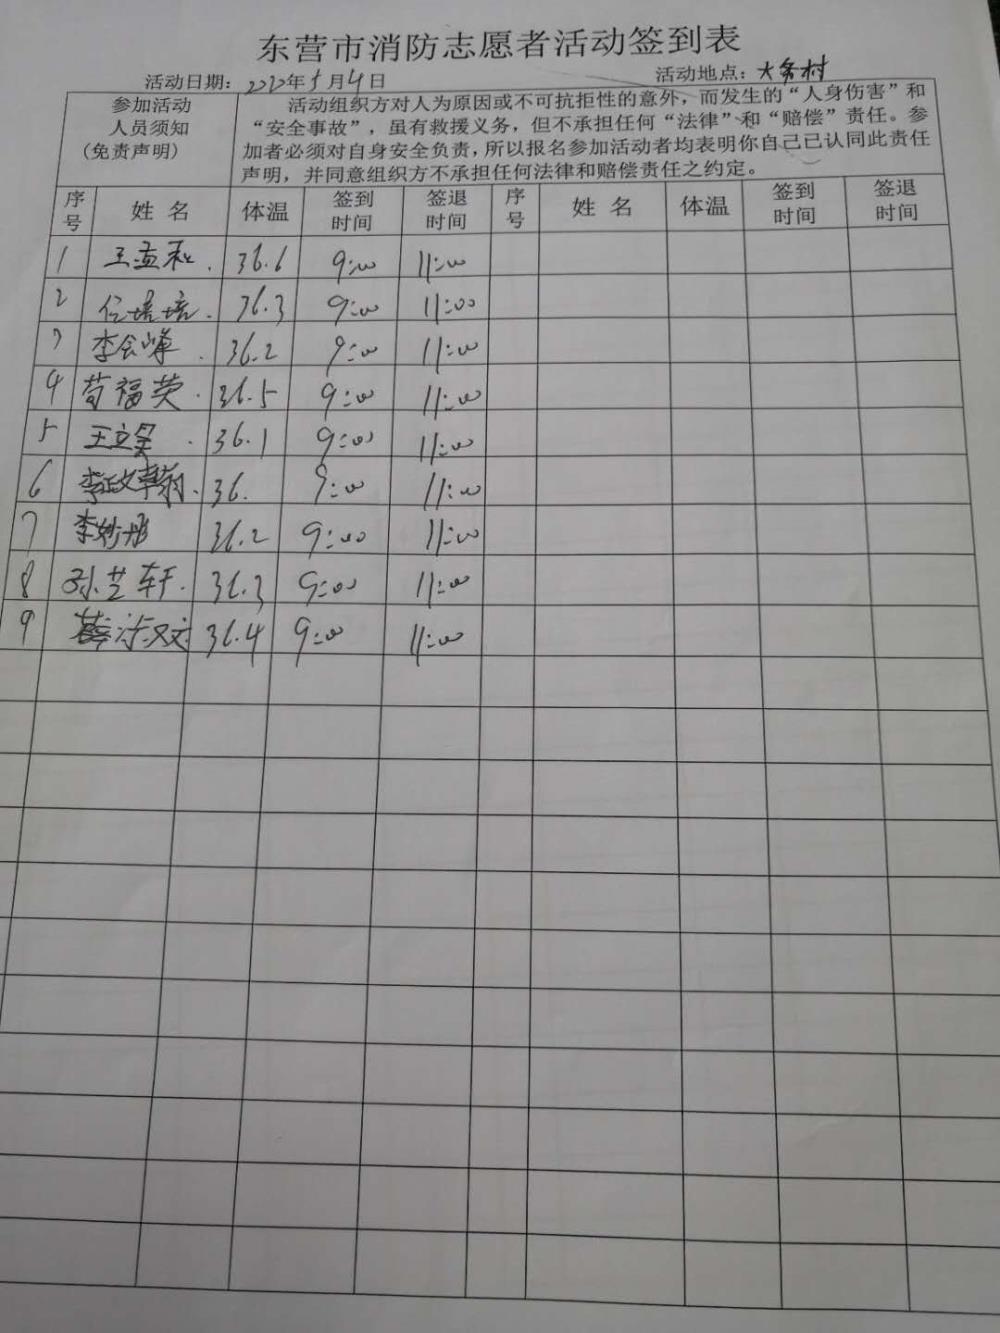 东营市消防志愿者活动签到表
活动日期：2020年5月4日 活动地点：大务村
参加活动
人员须知
(免责声明)
活动组织方对人为原因或不可抗拒性的意外，而发生的“人身伤害”和
“安全事故”，虽有救援义务，但不承担任何“法律”和“赔偿”责任。参
加者必须对自身安全负责，所以报名参加活动者均表明你自己已认同此责任
声明，并同意组织方不承担任何法律和赔偿责任之约定。
序号 姓名 体温 签到时间 签退时间 序号 姓名 体温 签到时间 签退时间
1 王孟 36.6 9:00 11:00
2 任培培 36.3 9:00 11:00
3 李会峰 36.2 9:00 11:00
4 苟福荣 36.5 9:00 11:00
5 王立昊 36.1 9:00 11:00
6 李 36. 9:00 11:00
7 李妙彤 36.2 9:00 11:00
8 孙芝轩 36.3 9:00 11:00
9 36.4 9:00 11:00